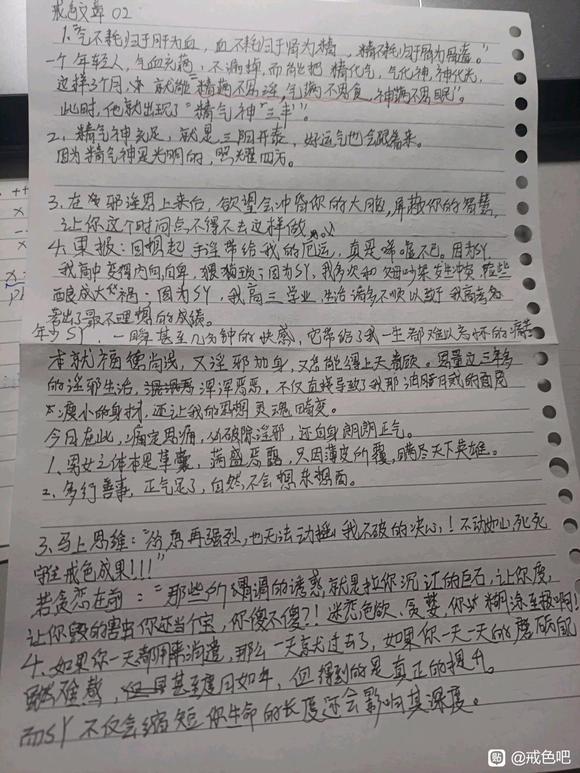 戒色文章 02
1. "气不耗归于肝为血，血不耗归于肾为精，精不耗归于肾为骨髓。"
一个年轻人，气血充满，不漏掉，而能把精化气，气化神，神化光，
这样3个月，来就能"精满不思淫，气满不思食，神满不思眠"。
此时，他就出现了"精气神"三丰"。
2. 精气神充足，就是三阳开泰，好运气也会跟着来。
因为精气神是光明的，照耀四方。
3. 在 邪淫思上来后，欲望会冲昏你的大脑，屏蔽你的智慧，
让你这个时间点不得不去这样做。
4. 果报：回想起手淫带给我的厄运，真是唏嘘不已。因为SY，
我高中变得内向自卑，猥琐；因为SY，我多次和父母吵架发生冲突，险些
酿成大祸；因为SY，我高三学业，生活诸多不顺以致于我高考名
考出了最不理想的成绩。
年少SY，一瞬甚至几分钟的快感，它带给了我一生都难以忘怀的痛苦
本就福德尚浅，又淫邪加身，又怎能得上天眷顾。累量这三年多
的淫邪生活，浑浑恶恶，不仅直接导致了我那
瘦小的身材，还让我的思想灵魂畸变。
今日在此，痛定思痛，必破除淫邪，还自身朗朗正气。
1. 男女之体本是革囊，满盛恶露，只因薄皮所覆，瞒尽天下英雄。
2. 多行善事，正气足了，自然不会想东想西。
3. 马上思维："你思再强烈，也无法动摇我不破的决心！！不动如山死死
守住戒色成果！！！"
若贪恋在前："那些所谓调的诱惑就是拉你沉江的巨石，让你废，
让你毁的害虫你还当个宝，你傻不傻？！迷恋色欲、贪婪，你 糊涂至极啊！
4. 如果你一天都用来消遣，那么一天就过去了，如果你一天一天的磨砺自己
虽然难熬，但是甚至度日如年，但得到的是真正的提升。
而SY不仅会缩短你生命的长度还会影响其深度。
贴 @戒色吧